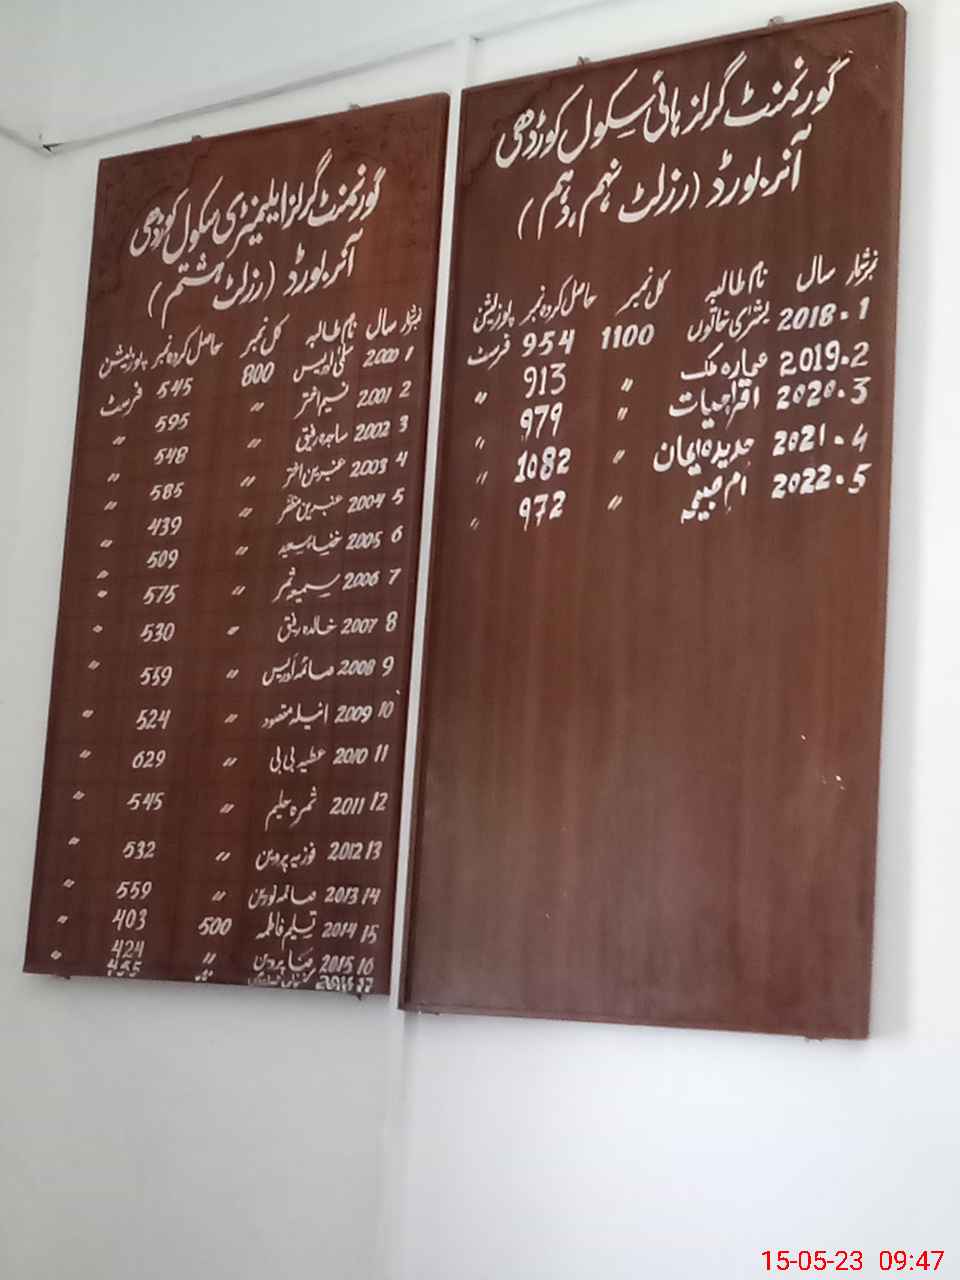 گورنمنٹ گرلز ہائی سکول کورڈھی
آنر بورڈ (رزلٹ نہم، دہم)
نمبرشمار سال نام طالبہ کل نمبر حاصل کردہ نمبر پوزیشن
1 . 2018 بشریٰ خاتون 1100 954 فرسٹ
2 . 2019 عمارہ ملک 〃 913 〃
3 . 2020 اقراء حیات 〃 979 〃
4 . 2021 حدیدہ ایمان 〃 1082 〃
5 . 2022 ام حبیبہ 〃 972 〃
گورنمنٹ گرلز ایلیمنٹری سکول کورڈھی
آنر بورڈ (رزلٹ ہشتم)
نمبرشمار سال نام طالبہ کل نمبر حاصل کردہ نمبر پوزیشن
1 2000 سلمیٰ ادریس 800 545 فرسٹ
2 2001 نسیم اختر 〃 595 〃
3 2002 ساجدہ رفیق 〃 548 〃
4 2003 عنبرین اختر 〃 585 〃
5 2004 عنبرین مظفر 〃 439 〃
6 2005 سعید 〃 509 〃
7 2006 سمیعہ ثمر 〃 575 〃
8 2007 خالدہ رفیق 〃 530 〃
9 2008 صائمہ ادریس 〃 559 〃
10 2009 انیلہ مقصود 〃 524 〃
11 2010 عطیہ بی بی 〃 629 〃
12 2011 ثمرہ حلیم 〃 545 〃
13 2012 فوزیہ پروین 〃 532 〃
14 2013 صائمہ نورین 〃 559 〃
15 2014 تسلیم فاطمہ 500 403 〃
16 2015 صبا پروین 〃 424 〃
17 2016 〃 455
15-05-23 09:47